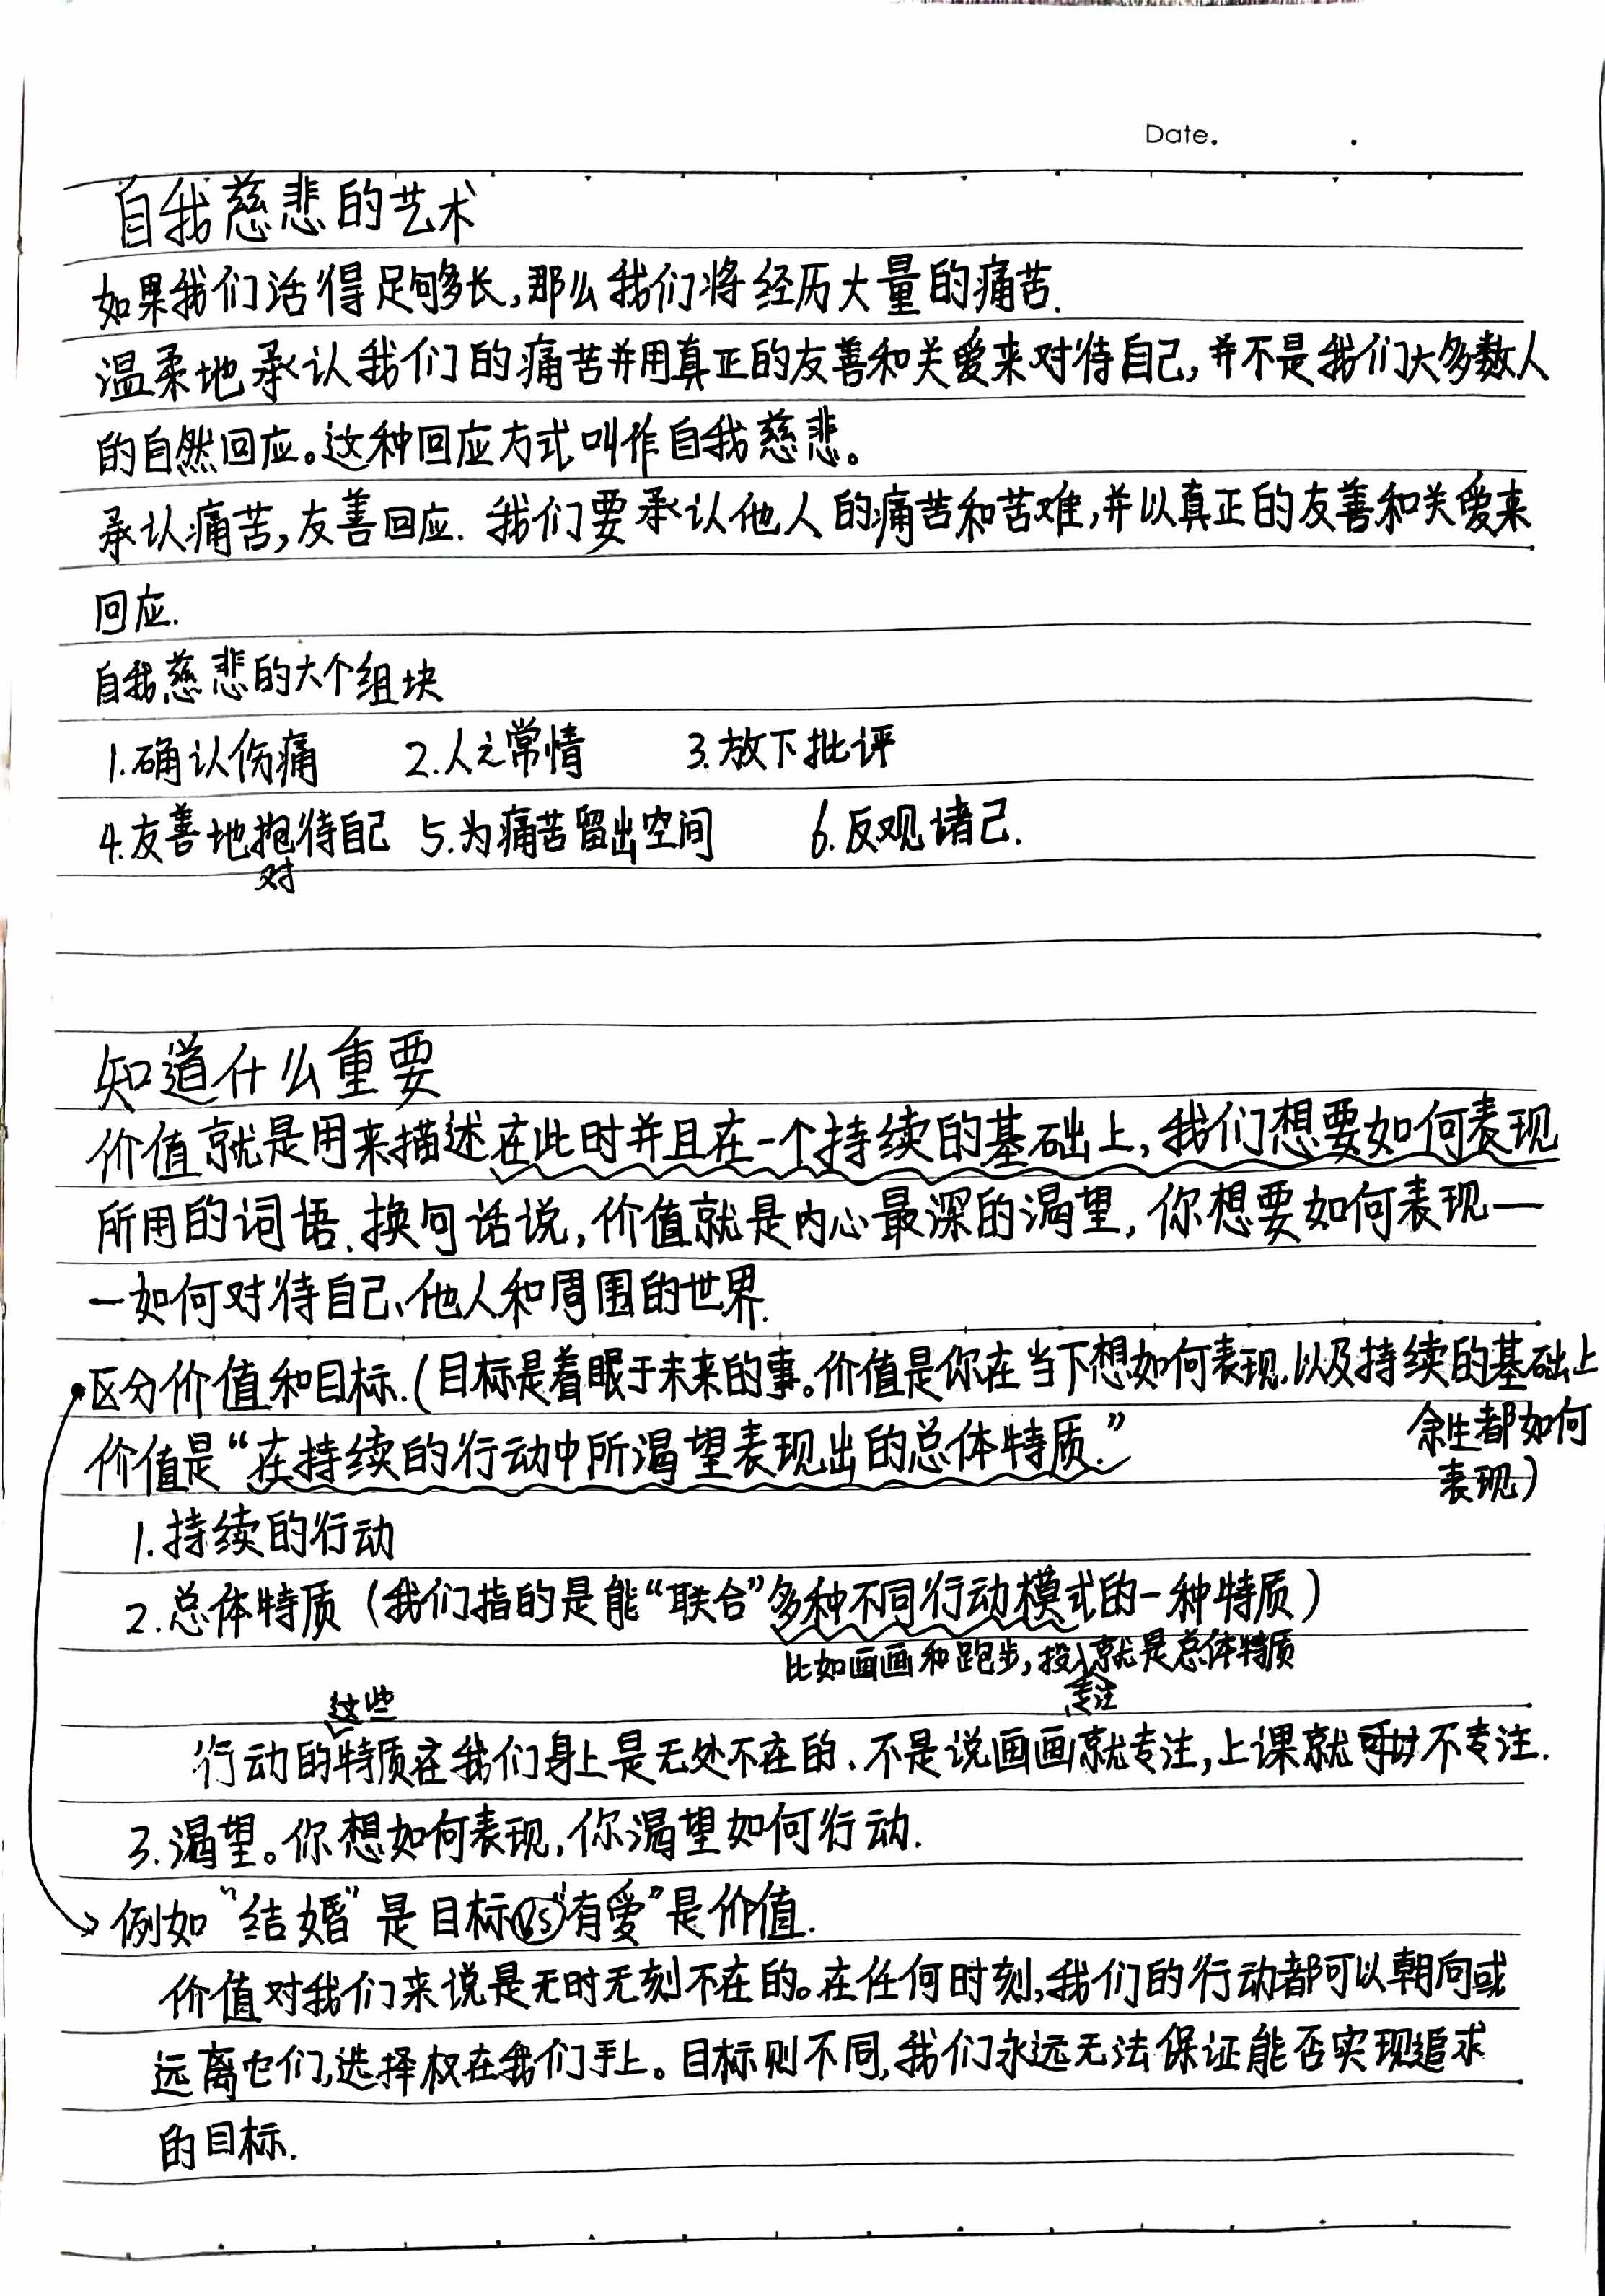 Date.
自我慈悲的艺术
如果我们活得足够多长,那么我们将经历大量的痛苦.
温柔地承认我们的痛苦并用真正的友善和关爱来对待自己,并不是我们大多数人
的自然回应。这种回应方式叫作自我慈悲。
承认痛苦,友善回应. 我们要承认他人的痛苦和苦难,并以真正的友善和关爱来
回应.
自我慈悲的六个组块
1.确认伤痛 2.人之常情 3.放下批评
4.友善地抱待自己 5.为痛苦留出空间 6.反观诸己.
对
知道什么重要
价值就是用来描述在此时并且在一个持续的基础上,我们想要如何表现
所用的词语.换句话说,价值就是内心最深的渴望,你想要如何表现—
—如何对待自己、他人和周围的世界.
区分价值和目标.(目标是着眼于未来的事。价值是你在当下想如何表现.以及持续的基础上
余生都如何
表现)
价值是“在持续的行动中所渴望表现出的总体特质.”
1.持续的行动
2.总体特质(我们指的是能“联合”多种不同行动模式的一种特质)
比如画画和跑步,投入就是总体特质
专注
这些
行动的特质在我们身上是无处不在的、不是说画画就专注,上课就可以不专注.
3.渴望。你想如何表现,你渴望如何行动.
例如“结婚”是目标VS“有爱”是价值.
价值对我们来说是无时无刻不在的。在任何时刻,我们的行动都可以朝向或
远离它们,选择权在我们手上。目标则不同,我们永远无法保证能否实现追求
的目标.